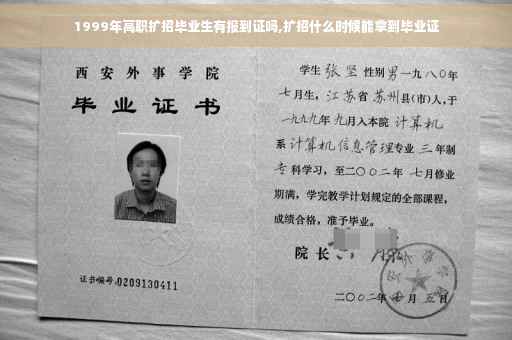 1999年高职扩招毕业生有报到证吗,扩招什么时候能拿到毕业证
西安外事学院
毕业证书
证书编号:0209130411
学生 张坚 性别 男 一九八〇年
七月生, 江苏省 苏州 县(市)人,于
一九九九年 九月入本院 计算机
系 计算机信息管理 专业 三 年制
专 科学习, 至二〇〇二年 七月修业
期满, 学完教学计划规定的全部课程,
成绩合格, 准予毕业。
院长
二〇〇二年 七 月 五 日